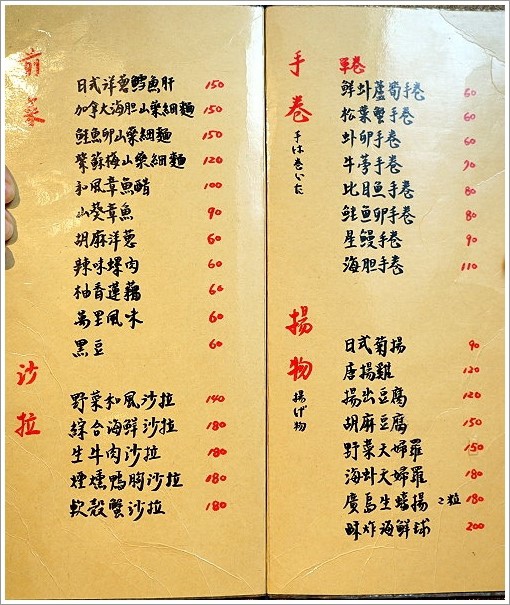 前菜
日式洋蔥鱈魚肝 150
加拿大海胆山藥細麵 150
鮭魚卵山藥細麵 150
紫蘇梅山藥細麵 120
和風章魚醋 100
山葵章魚 90
胡麻洋蔥 60
辣味螺肉 60
柚香蓮藕 60
萬里風味 60
黑豆 60
沙拉
野菜和風沙拉 140
綜合海鮮沙拉 180
生牛肉沙拉 180
煙燻鴨胸沙拉 180
軟殼蟹沙拉 180
手卷
手は巻いた
單卷
鮮蚪蘆筍手卷 60
松葉蟹手卷 60
卵手卷 60
牛蒡手卷 70
比目魚手卷 80
鮭魚卵手卷 80
星鰻手卷 90
海胆手卷 110
揚物
揚げ物
日式菊揚 90
唐揚雞 120
揚出豆腐 120
胡麻豆腐 150
野菜天婦羅 150
海蚪天婦羅 180
廣島生蠔揚 2粒 180
酥炸海鮮球 200